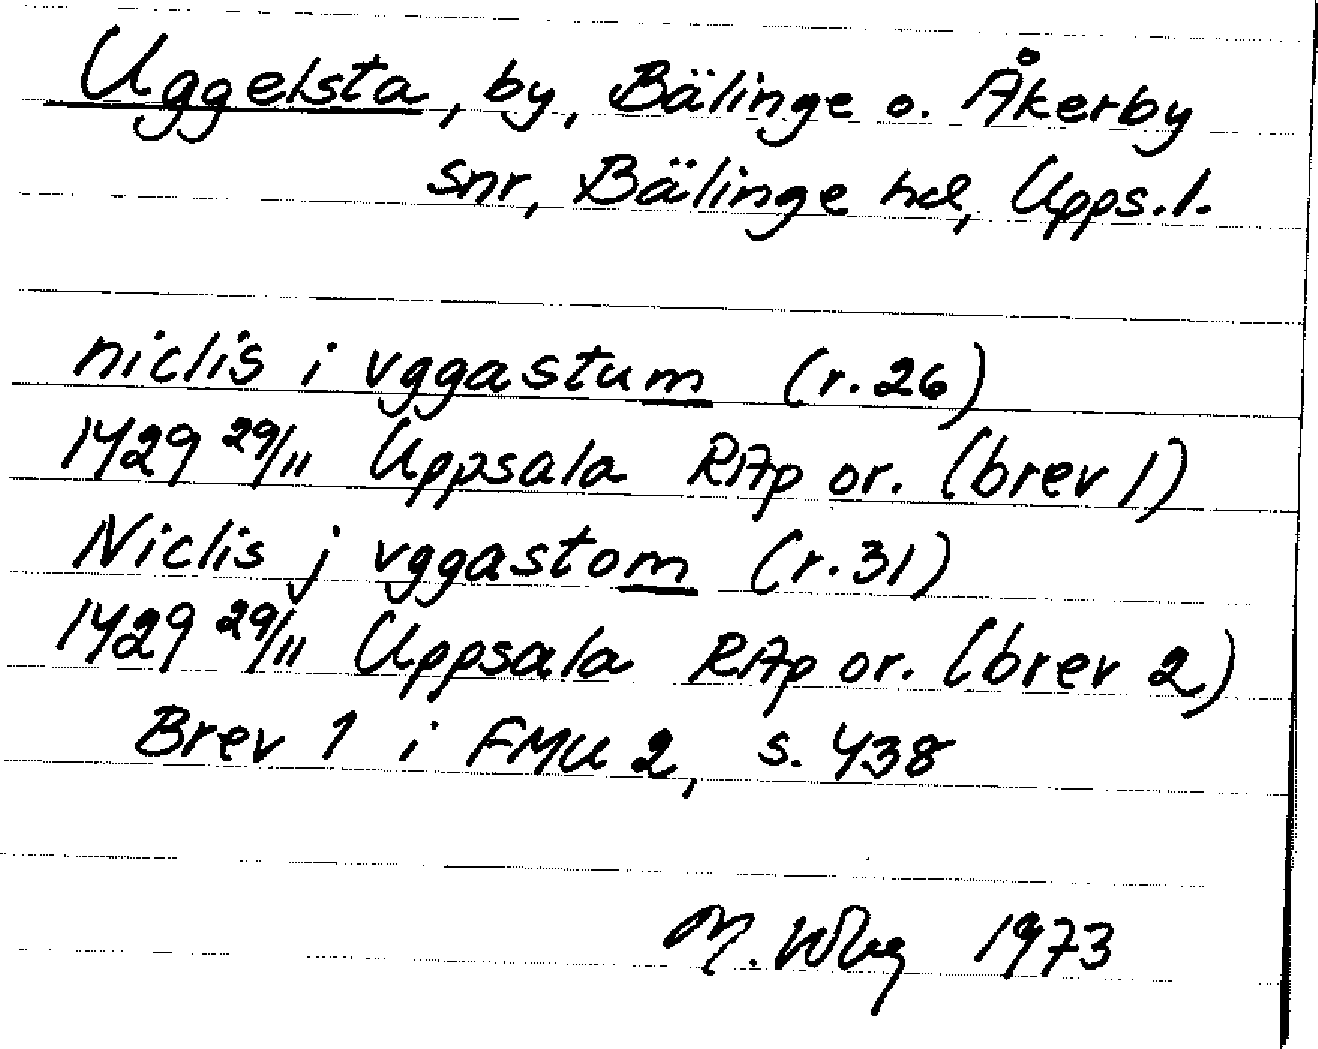 Uggelsta, by, Bälinge o. Åkerby
snr, Bälinge hd, Upps.l.
niclis i vggastum (r.26)
1429 29/11 Uppsala RAp or. (brev 1)
Niclis j vggastom (r.31)
1429 29/11 Uppsala RAp or. (brev 2)
Brev 1 i FMU 2, s. 438
M. 1973